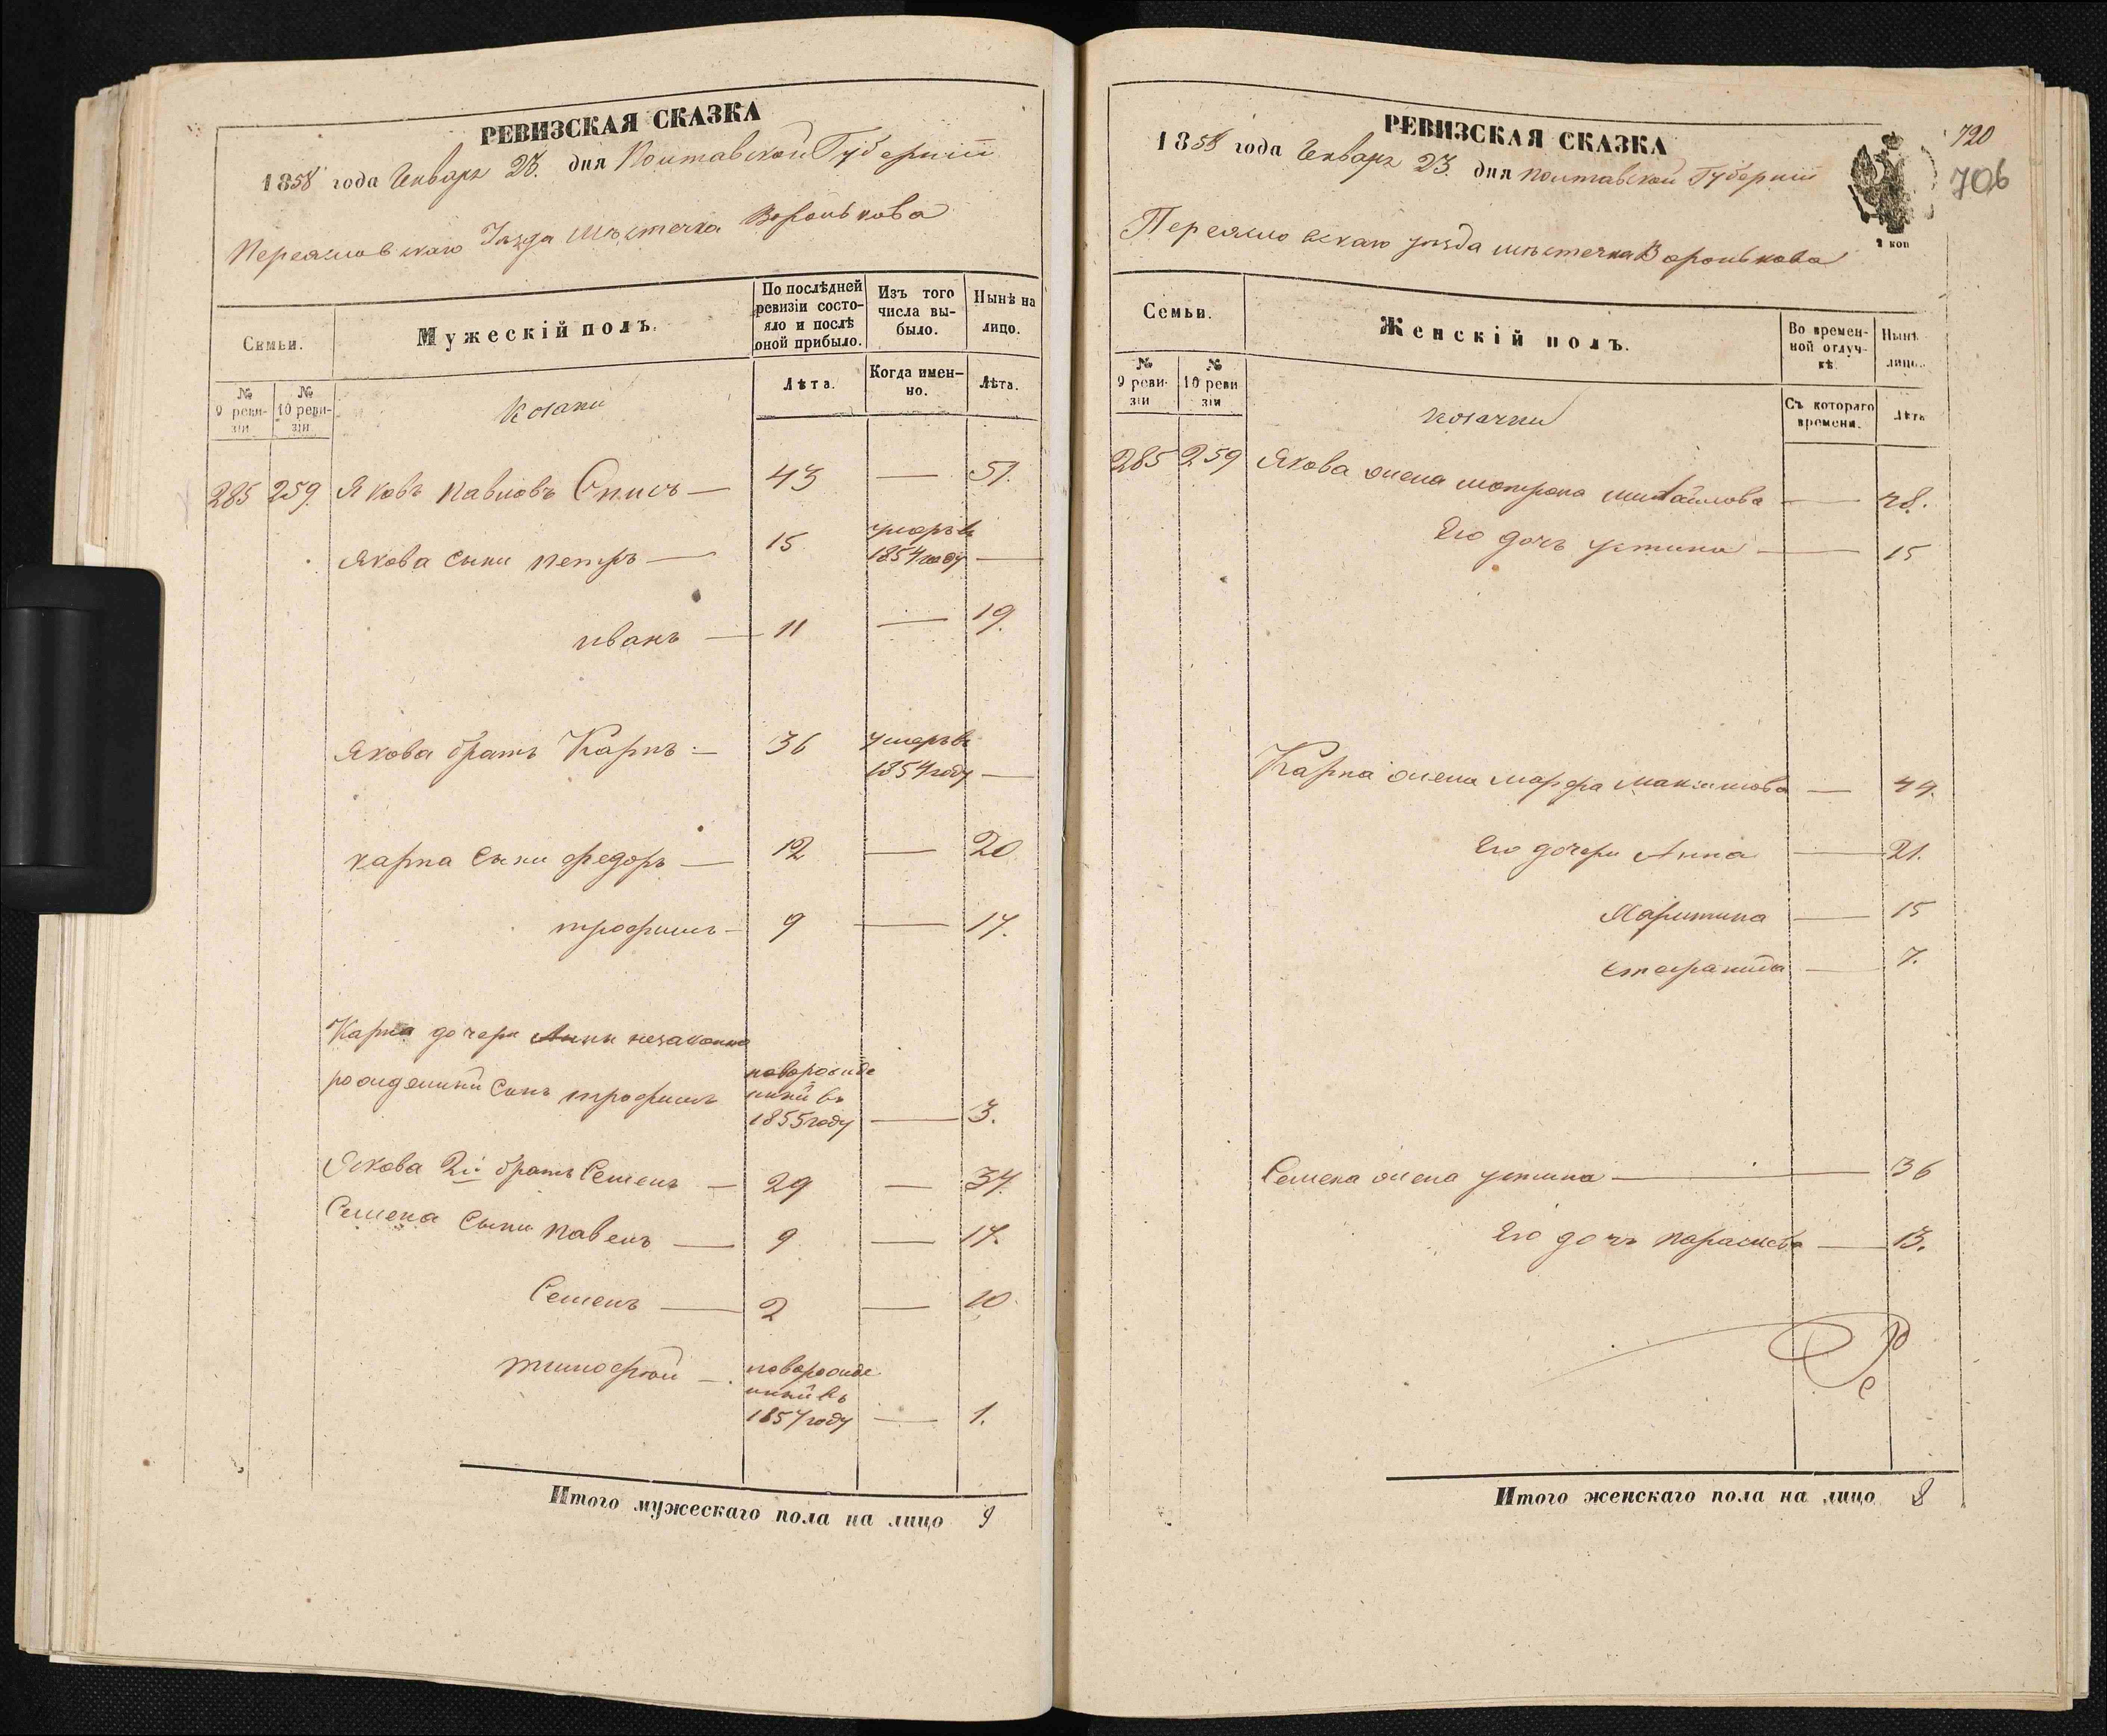 РЕВИЗСКАЯ СКАЗКА
1858 года Генваря 23. дня Полтавской Губерніи
Переяславскаго Уезда мѣстечка Воронькова
Семьи.
Мужескій полъ.
По послѣдней ревизіи состояло и послѣ оной прибыло.
Изъ того числа выбыло.
Нынѣ на лицо.
№ 9 ревизіи
№ 10 ревизіи
Козаки
Лѣта.
Когда именно.
Лѣта.
285 259 Яковъ Павловъ Списъ — 43 — 51.
Якова сыни Петръ — 15 умеръ въ 1854 году —
Иванъ — 11 — 19.
Якова братъ Карпъ — 36 умеръ въ 1854 году —
Карпа сыни Федоръ — 12 — 20
Трофимъ — 9 — 17.
Карпа дочери Анны незаконно
рожденный сынъ Трофимъ новорожденный въ 1855 году — 3.
Якова 2й братъ Семенъ — 29 — 37.
Семена сыни Павелъ — 9 — 17.
Семенъ — 2 — 10.
Тимофей — новорожденный въ 1857 году — 1.
Итого мужескаго пола на лицо 9
720
706
РЕВИЗСКАЯ СКАЗКА
1858 года Генваря 23. дня Полтавской Губерніи
Переяславскаго уезда мѣстечка Воронькова
Семьи.
Женскій полъ.
Во временной отлучкѣ.
Нынѣ лицо.
№ 9 ревизіи
№ 10 ревизіи
Козачки
Съ котораго времени.
Лѣта
285 259 Якова жена Мотрона Михайлова — 48.
Его дочь Устина — 15
Карпа жена Марфа Максимова — 49.
Его дочери Анна — 21.
Мариина — 15
Степанида — 7.
Семена жена Устина — 36
Его дочь Параскева — 13.
Итого женскаго пола на лицо 8